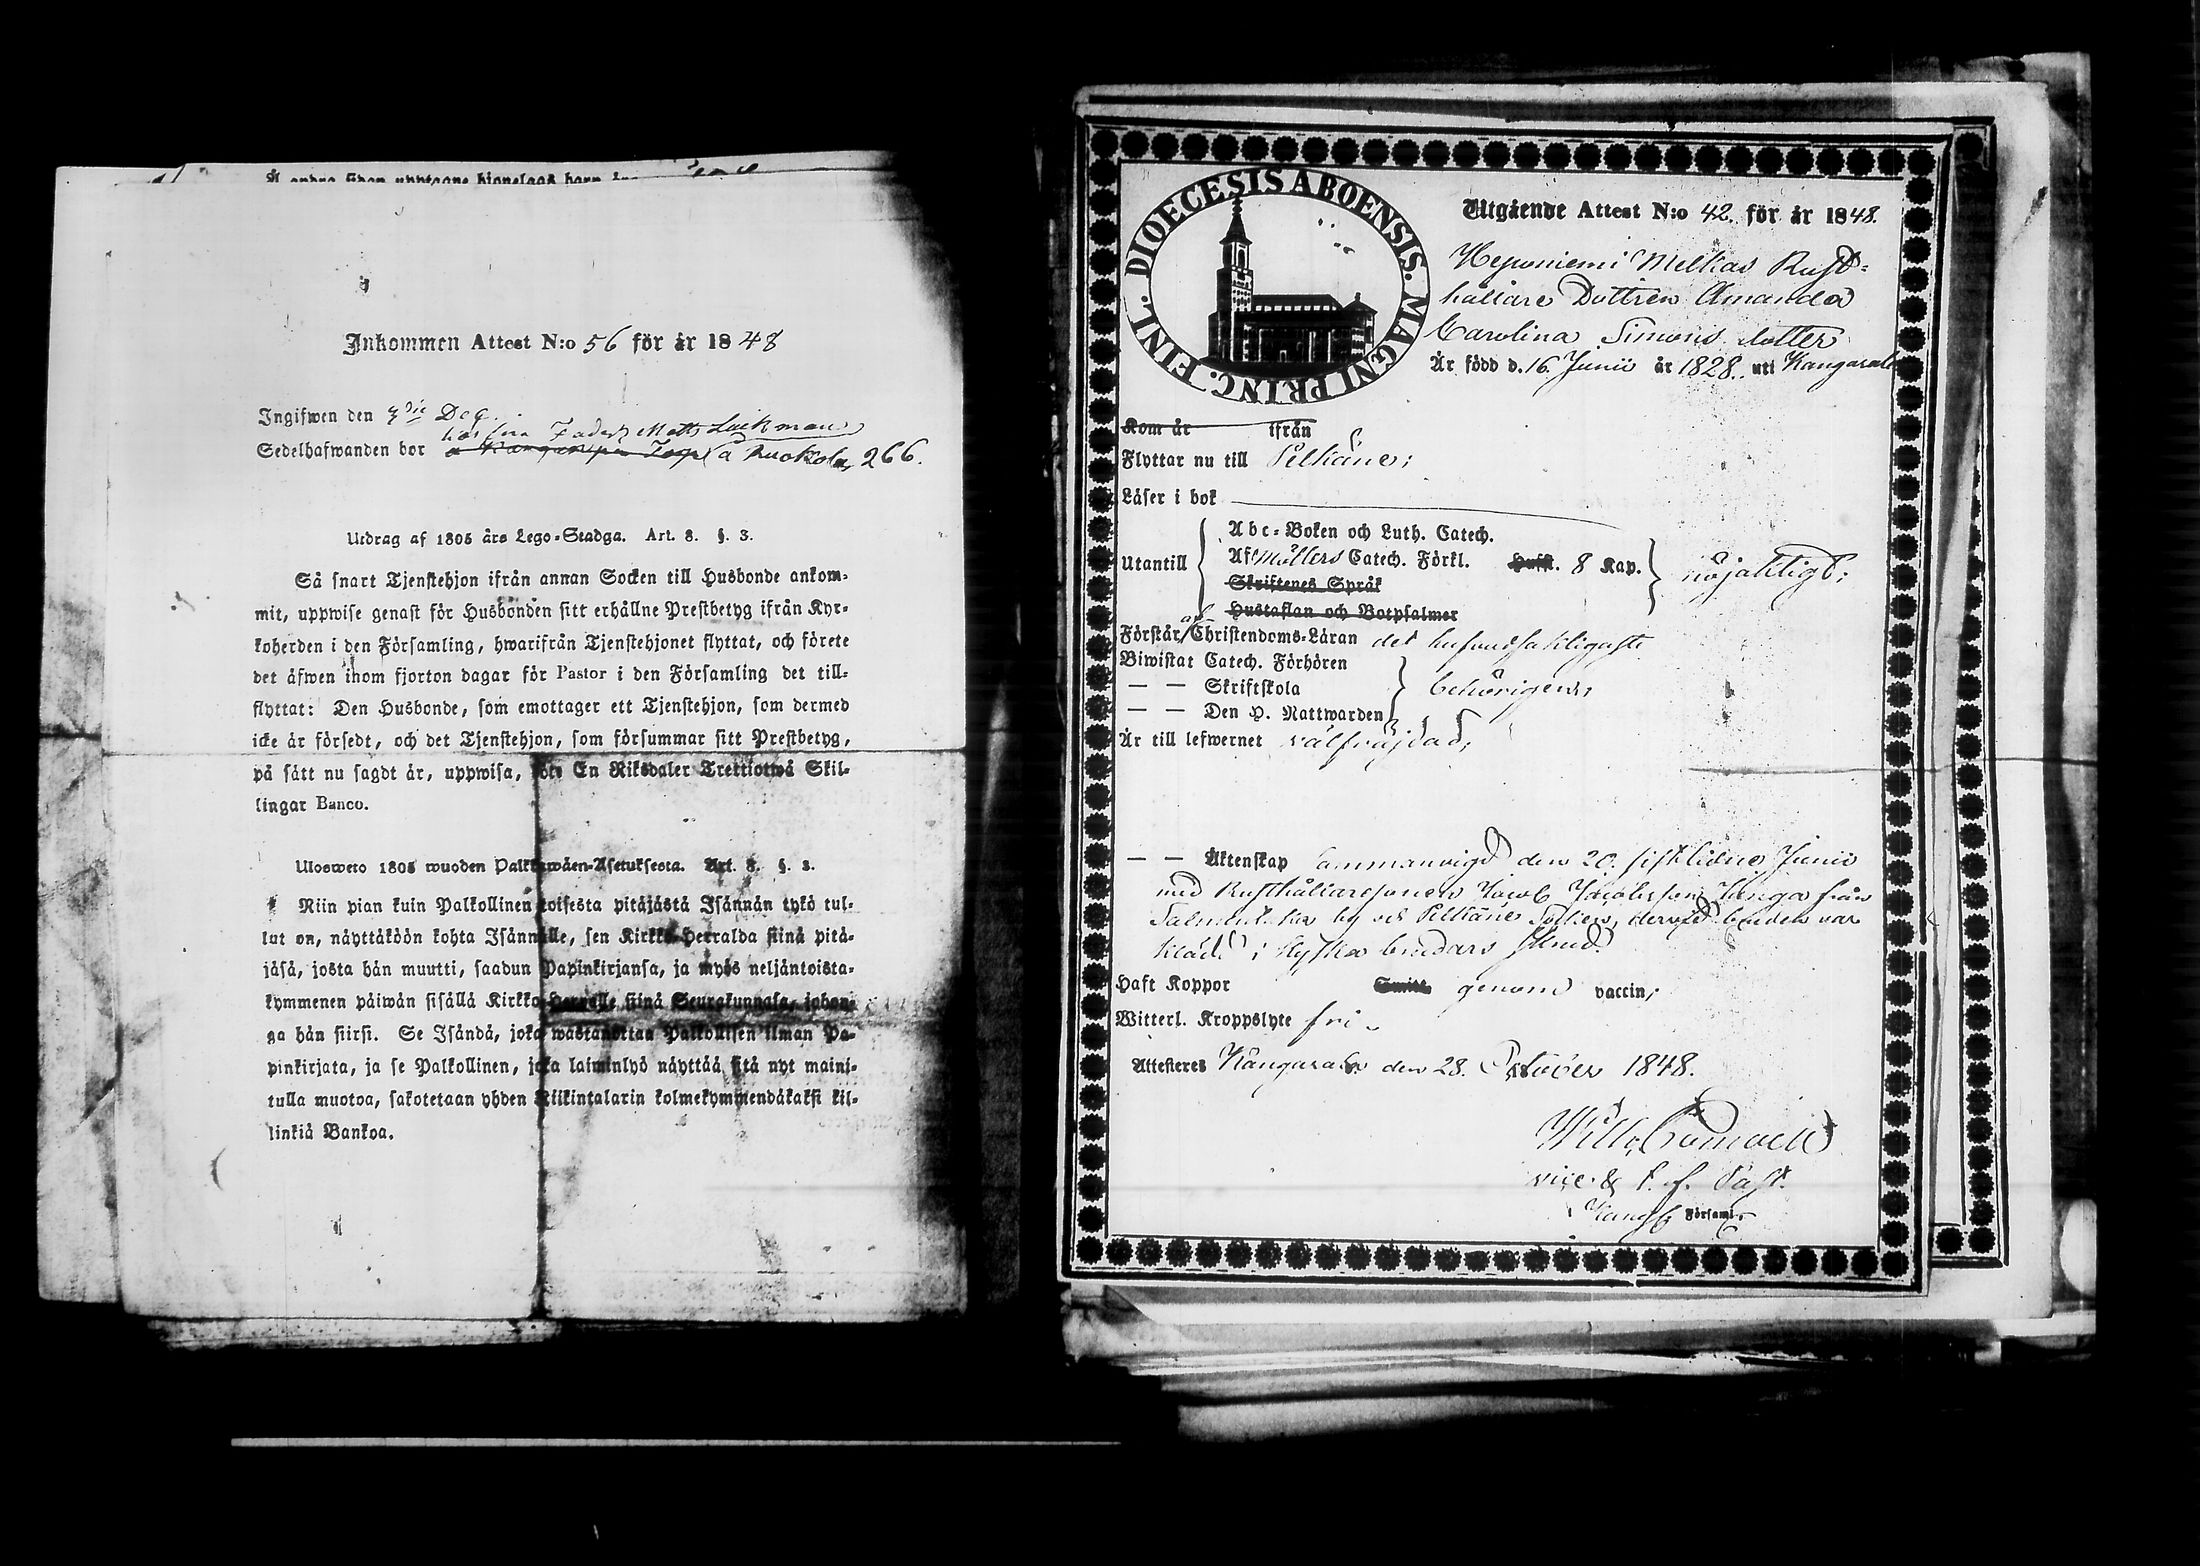 Å andra sidan upptagne hjonelags barn äro
Inkommen Attest N:o 56 för år 1848
Ingifwen den Dec.
hos sin Fader Matts Luikman
Sedelhafwanden bor å Ruokola, 266.
Utdrag af 1805 års Lego-Stadga. Art. 8. §. 3.
Så snart Tjenstehjon ifrån annan Socken till Husbonde ankom-
mit, uppwise genast för Husbonden sitt erhållne Prestbetyg ifrån Kyr-
koherden i den Församling, hwarifrån Tjenstehjonet flyttat, och förete
det äfwen inom fjorton dagar för Pastor i den Församling det till-
flyttat: Den Husbonde, som emottager ett Tjenstehjon, som dermed
icke är försedt, och det Tjenstehjon, som försummar sitt Prestbetyg,
på sätt nu sagdt är, uppwisa, böte En Riksdaler Trettiotwå Skil-
lingar Banco.
Ulosweto 1805 wuoden Palkkawäen-Asetuksesta. Art. 8. §. 3.
Niin pian kuin Palkollinen toisesta pitäjästä Isännän tykö tul-
lut on, näyttäköön kohta Isännälle, sen Kirkko-Herralda siinä pitä-
jäsä, josta hän muutti, saadun Papinkirjansa, ja myös neljäntoista-
kymmenen päiwän sisällä Kirkko-Herralle siinä Seurakunnasa, johon-
ga hän siirsi. Se Isändä, joka wastanottaa Palkollisen ilman Pa-
pinkirjata, ja se Palkollinen, joka laiminlyö näyttää sitä nyt maini-
tulla muotoa, sakotetaan yhden Riikintalarin kolmekymmendäkaksi kil-
linkiä Bankoa.
DIOECESIS ABOENSIS. MAGNI PRINC. FINL.
Utgående Attest N:o 42. för år 1848.
Heponiemi Melkas Rust-
hållare Dottren Amanda
Carolina Simons dotter
Är född d. 16 Junii år 1828. uti Kangasala
Kom år ifrån
Flyttar nu till Pelkäne;
Läser i bok
Utantill
Abc-Boken och Luth. Catech.
Af Möllers Catech. Förkl. Hufst. 8 Kap. nöjaktigt;
Skriftenes Språk
Hustaflan och Botpsalmer
Förstår af Christendoms-Läran det hufvudsakligaste
Biwistat Catech. Förhören
— — Skriftskola behörigen;
— — Den H. Nattwarden
Är till lefwernet välfräjdad;
— — Äktenskap sammanvigd den 20. sistlidne Junii
med Rusthållaresonen Jacob Jacobsson från
by och Pelkäne Socken, hervid bruden var
klädd i Kyska brudars skrud.
Haft Koppor Smitt. genom vaccin;
Witterl. Kroppslyte fri.
Attesteres Kangasala den 28. October 1848.
vice & t. f. Past.
Kangl. Församl.